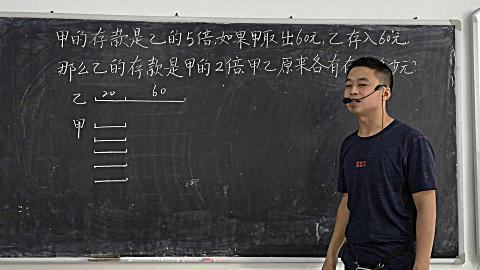 甲的存款是乙的5倍.如果甲取出60元,乙存入60元,
那么乙的存款是甲的2倍.甲乙原来各有存款 元?
乙 20 60
甲